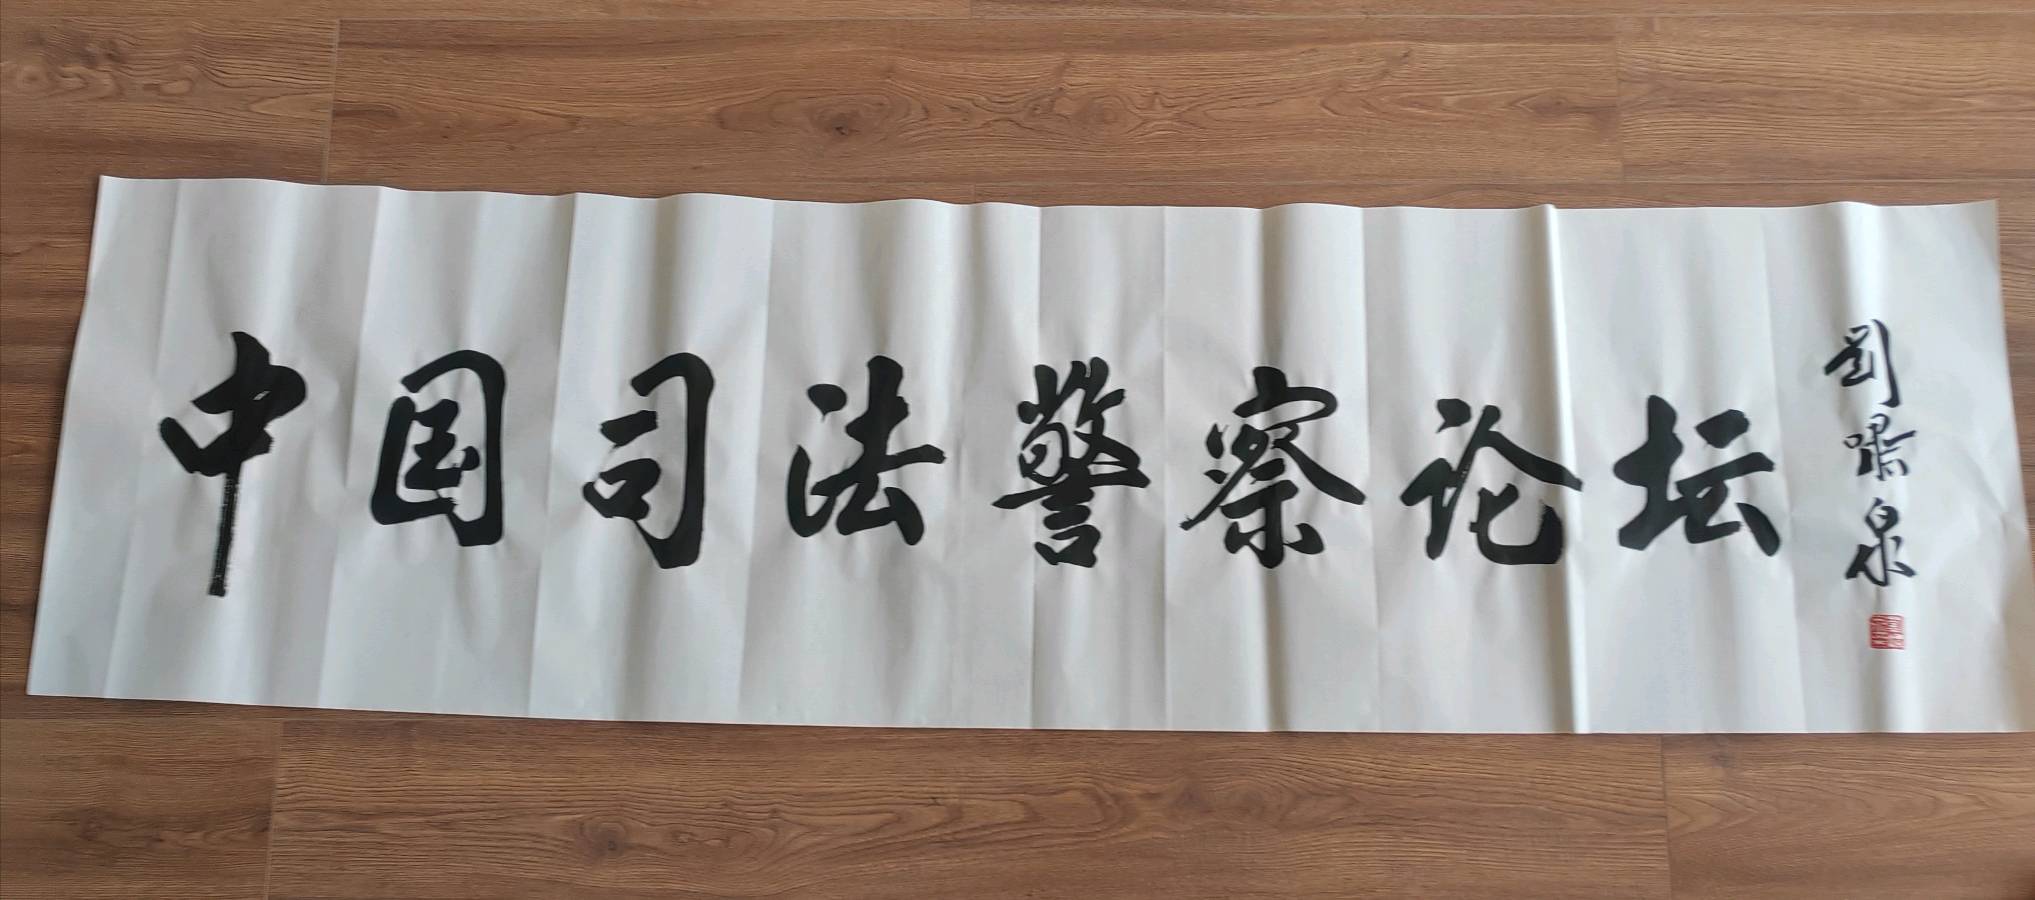 中国司法警察论坛
劉曙泉